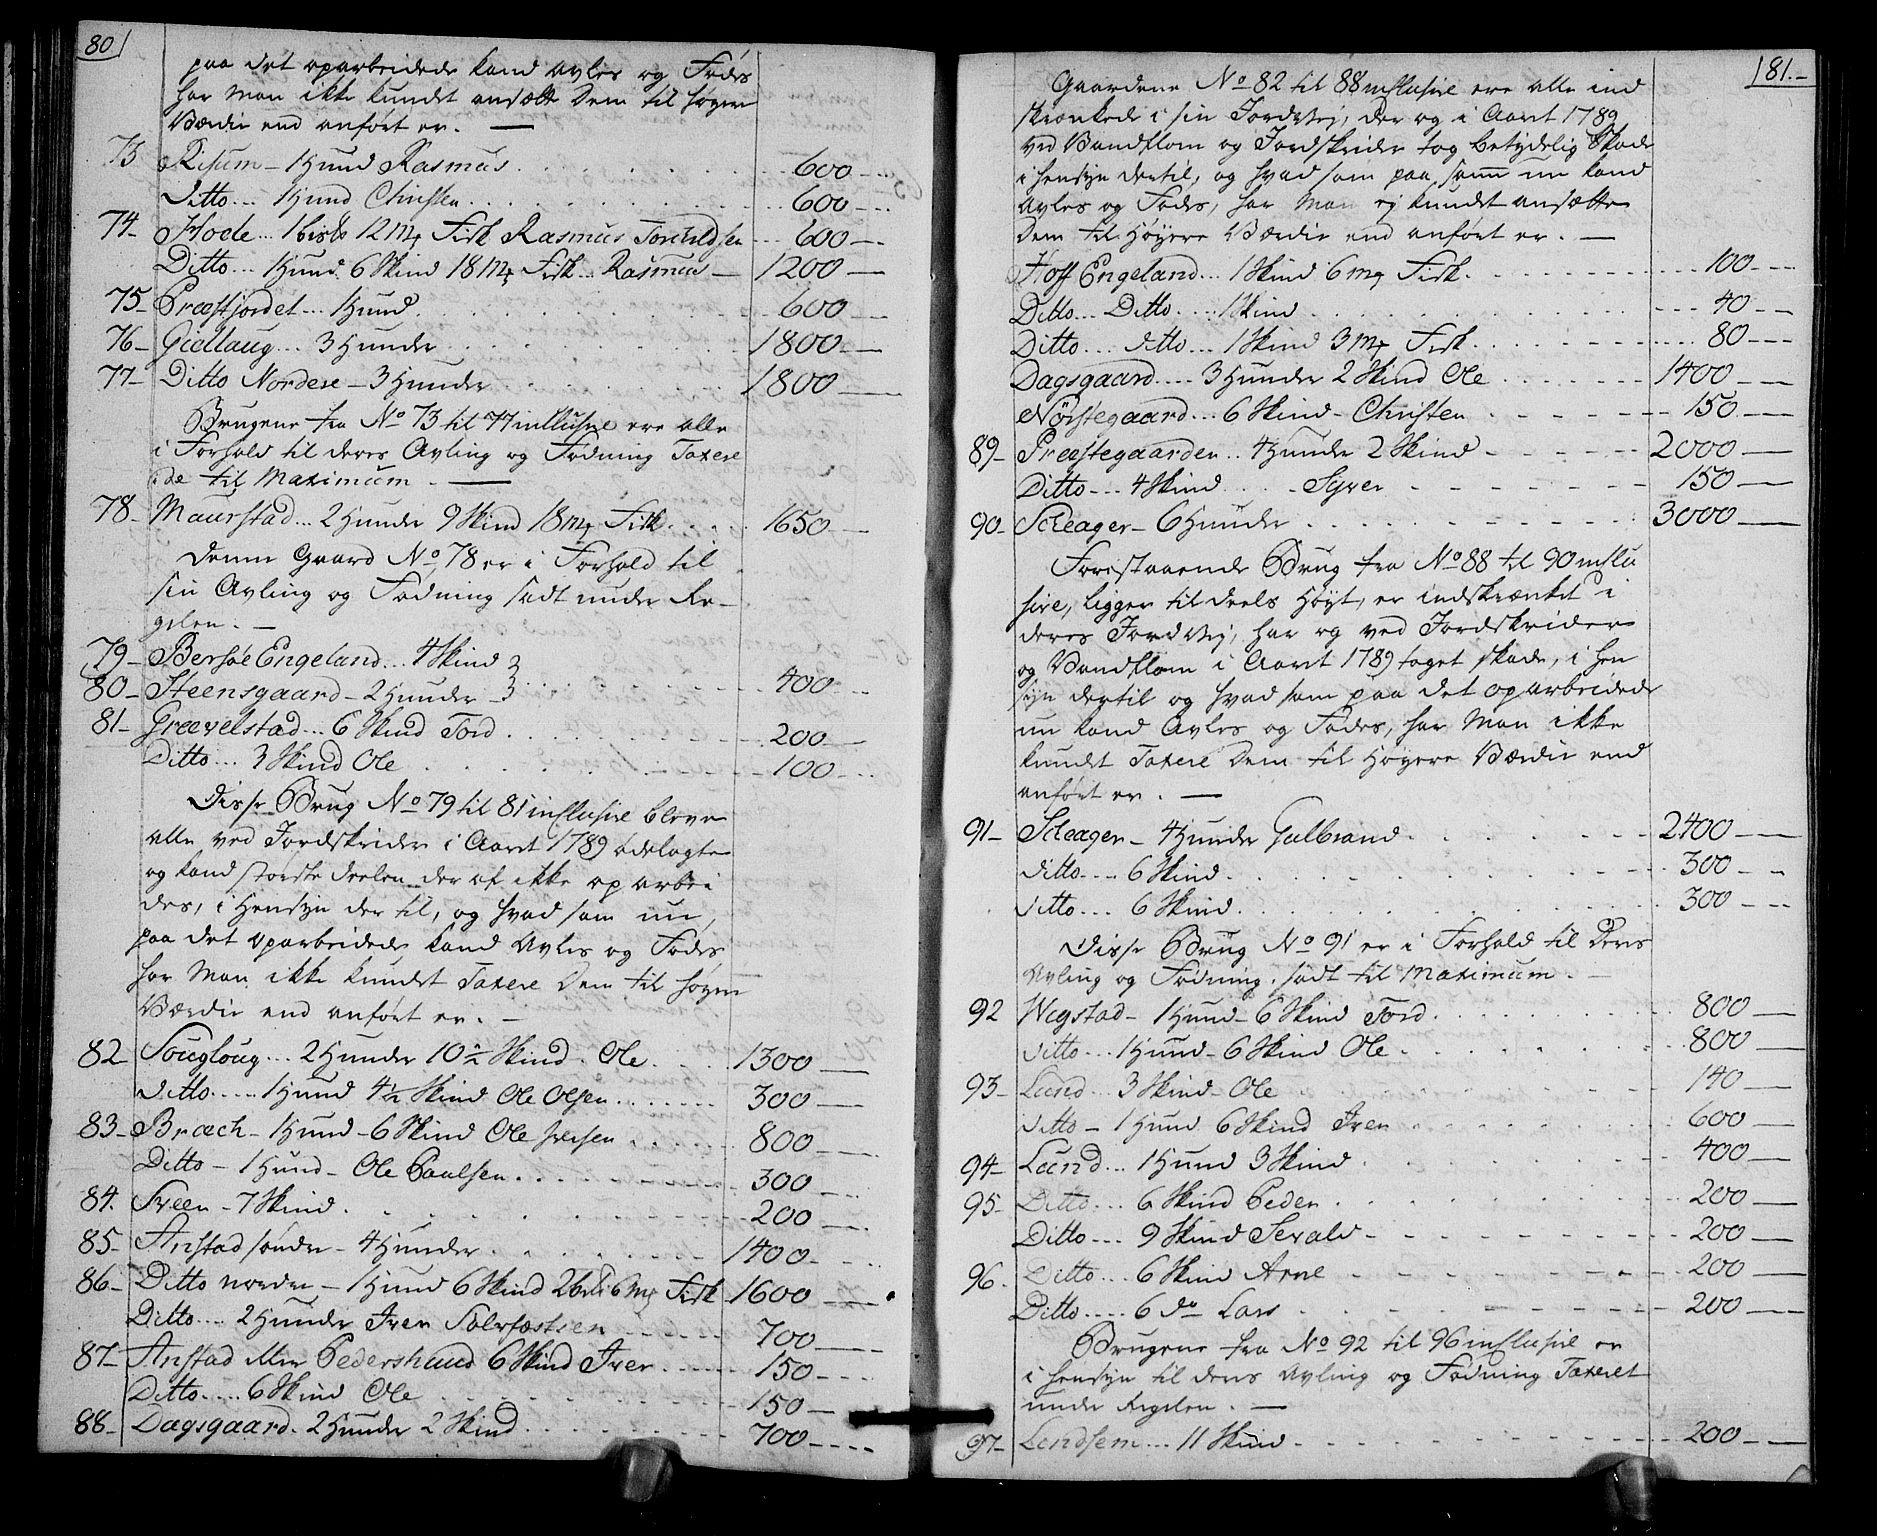 80
paa det oparbeidede kand Avles og Födes
har Man ikke kundet ansætte Dem til høyere
Værdie end anført er. —
73 Risum - 1 Hund Rasmus 600
Ditto... 1 Hund Christen 600
74- Hode... 1 12 Mk Fisk Rasmus Torchildsen 600
Ditto... 1 Hund 6 Skind 18 Mk Fisk... Rasmus 1200
75- Præstjordet... 1 Hund 600
76- Giellaug... 3 Hunder 1800
77- Ditto Nordere - 3 Hunder 1800
Brugene fra No 73 til 77 inclusive ere alle
i Forhold til deres Avling og Födning Taxere
de til Maximum. —
78- Maurstad... 2 Hunder 9 Skind 18 Mk Fisk 1650
Denne Gaard No 78 er i Forhold til
sin Avling og Födning sadt under Re-
gelen. —
79- Bersöe Engeland... 4 Skind
80- Steensgaard - 2 Hunder 400
81- Grævelstad... 6 Skind Tord 200
Ditto... 3 Skind Ole 100
Disse Brug No 79 til 81 inclusive bleve
alle ved Jordskrider i Aaret 1789 ödelagte
og kand störste Deelen der af ikke oparbei
des, i Hensyn der til, og hvad som nu,
paa det oparbeidede kand Avles og Födes
har Man ikke kundet Taxere Dem til høyere
Værdie end anført er. —
82 Sougloug... 2 Hunder 10½ Skind. Ole 1300
Ditto... 1 Hund 4½ Skind Ole Olsen 300
83- Bræch - 1 Hund - 6 Skind Ole Iversen 800
Ditto - 1 Hund - Ole Paulsen 300
84. Sveen - 7 Skind 200
85- Anstad söndre - 4 Hunder 1400
86- Ditto nordre - 1 Hund 6 Skind 2 6 Mk Fisk 1600
Ditto... 2 Hunder Iver Solvfæstsen 700
87- Anstad eller Pedershuus 6 Skind Iver 150
Ditto... 6 Skind Ole 150
88- Dagsgaard. 2 Hunder 2 Skind 700
181.-
Gaardene No 82 til 88 inclusive ere alle ind
skrænkede i sin Jordvej, der og i Aaret 1789
ved Vandflom og Jordskrider tog betydelig Skade
i Hensyn dertil, og hvad som paa samme nu kand
Avles og Födes, har Man ej kundet ansætte
Dem til Høyere Værdie end anført er. —
Hoff Engeland... 1 Skind 6 Mk Fisk 100
Ditto... Ditto... 1 Skind 40
Ditto... ditto... 1 Skind 3 Mk Fisk 80
Dagsgaard... 3 Hunder 2 Skind Ole 1400
Nörstegaard... 6 Skind - Christen 150
89- Præstegaarden.. 4 Hunder 2 Skind 2000
Ditto... 4 Skind Syver 150
90- Scheager- 6 Hunder 3000
Forestaaende Brug fra No 88 til 90 inclu
sive, ligger til deels Høyt, er indskrænket i
deres Jordvej, har og ved Jordskrider
og Vandflom i Aaret 1789 taget skade, i Hen
syn dertil og hvad som paa det oparbeidede
nu kand Avles og Födes, har Man ikke
kundet Taxere Dem til Høyere Værdie end
anført er. —
91- Scheager - 4 Hunder Gulbrand 2400
Ditto... 6 Skind 300
Ditto... 6 Skind 300
Disse Brug No 91 er i Forhold til Deres
Avling og Födning. sadt til Maximum. —
92 Wegstad - 1 Hund - 6 Skind Tord 800
Ditto... 1 Hund - 6 Skind Ole 800
93- Lund... 3 Skind - Ole 140
Ditto - 1 Hund 6 Skind Iver 600
94- Lund... 1 Hund 3 Skind 400
95- Ditto... 6 Skind Peder 200
Ditto... 9 Skind Sevald 200
96. Ditto... 6 Skind Arne 200
Ditto... 6 do Lars 200
Brugene fra No 92 til 96 inclusive er
i Hensyn til deres Avling og Födning Taxeret
under Regelen. —
97- Landsem... 11 Skind 200